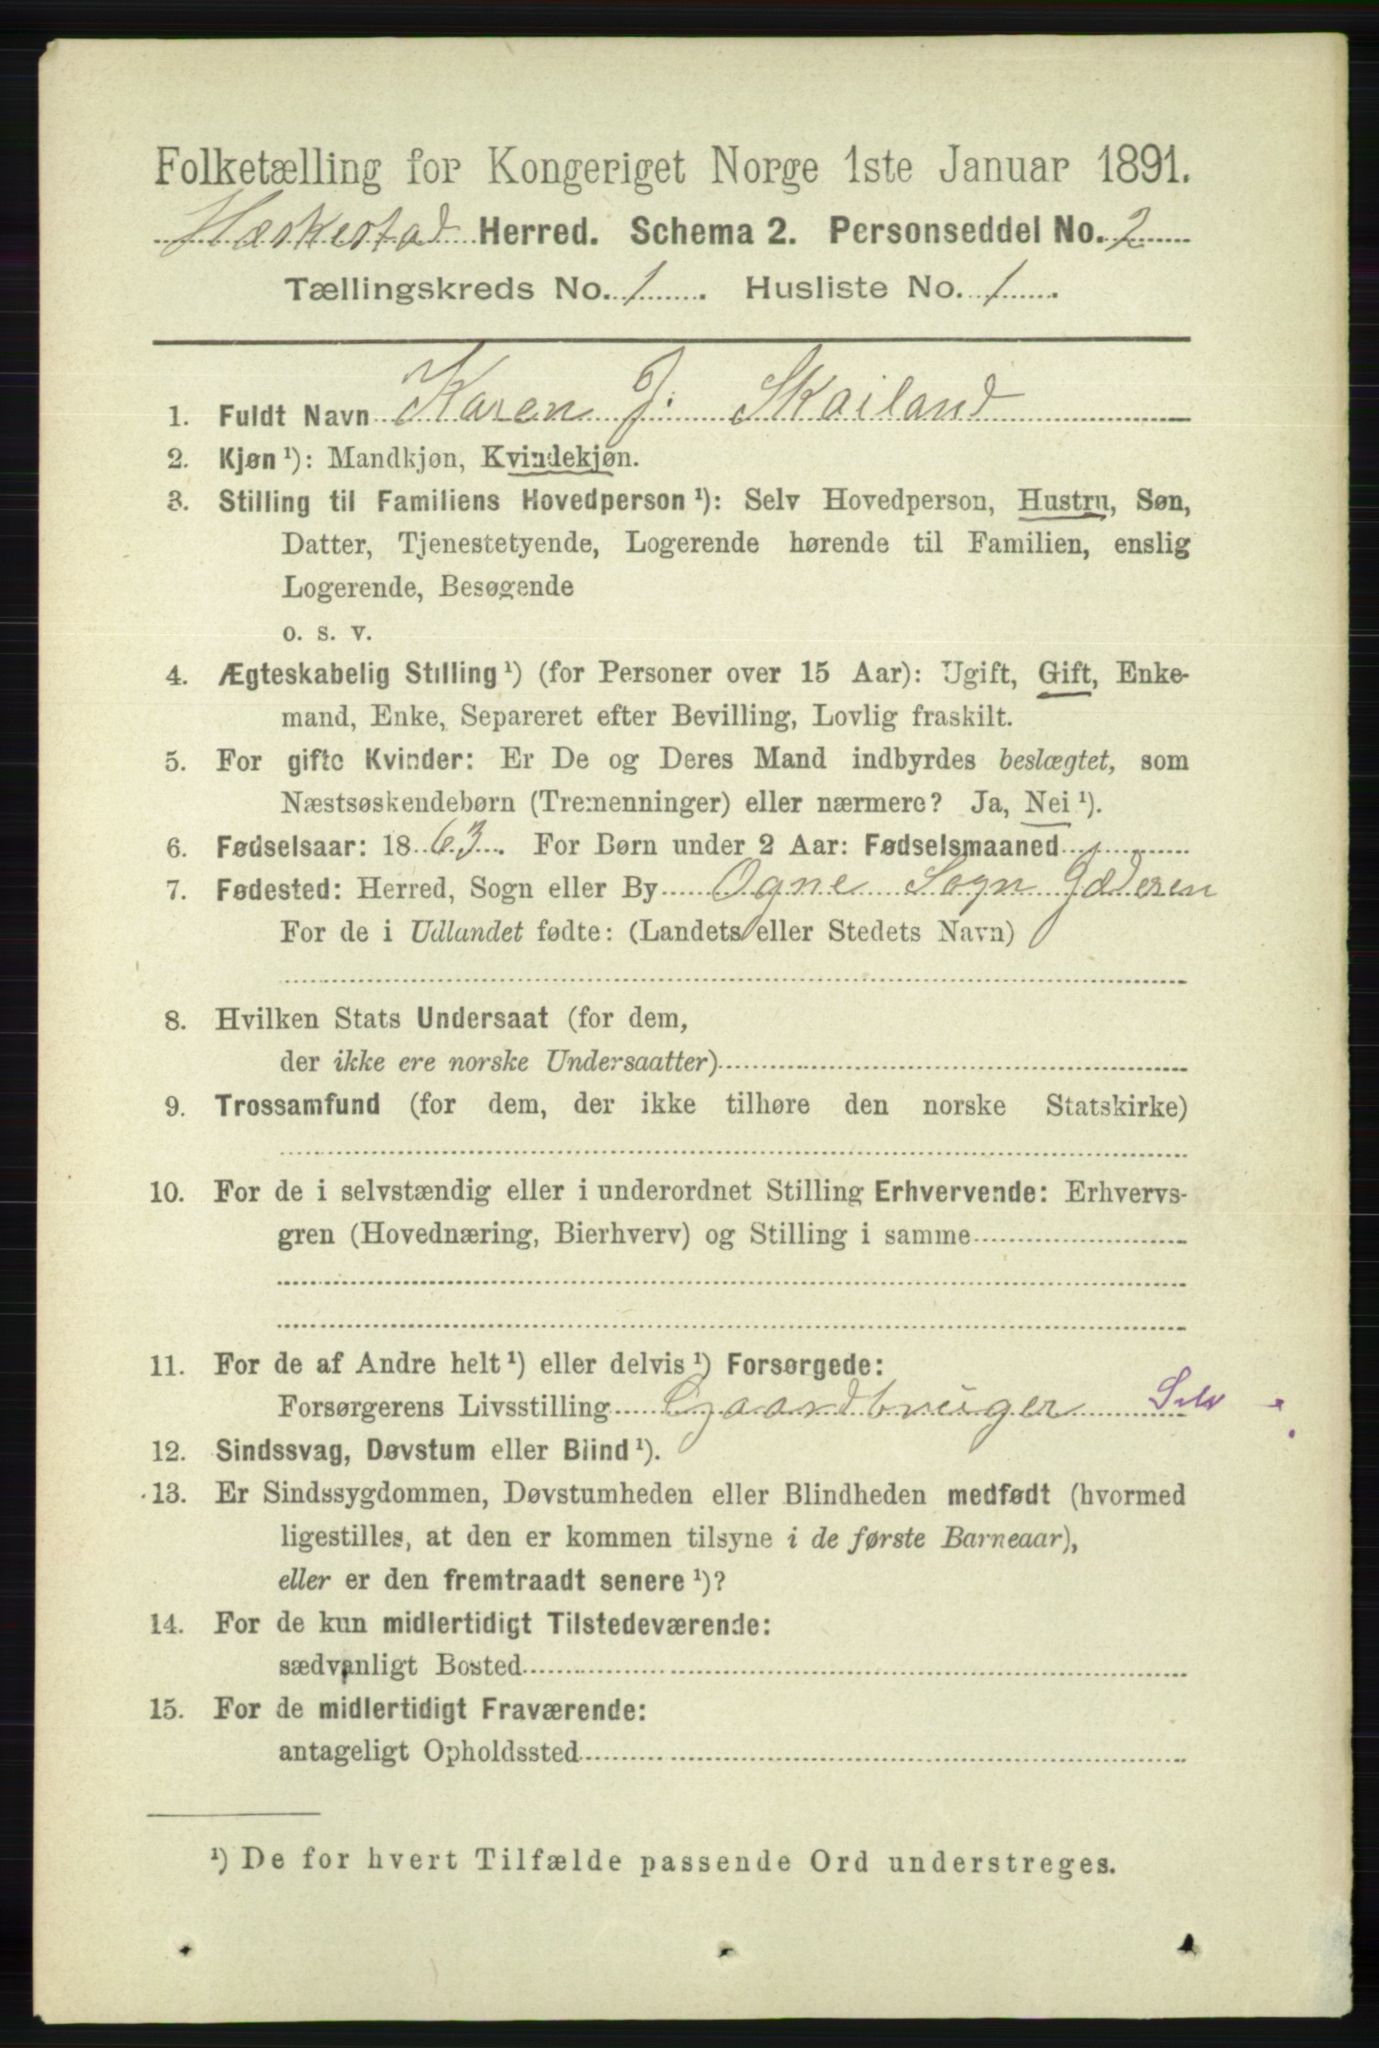 Folketælling for Kongeriget Norge 1ste Januar 1891.
Heskestad Herred. Schema 2. Personseddel No. 2
Tællingskreds No. 1. Husliste No. 1.
1. Fuldt Navn Karen J. Skailand
2. Kjøn ¹): Mandkjøn, Kvindekjøn.
3. Stilling til Familiens Hovedperson ¹): Selv Hovedperson, Hustru, Søn,
Datter, Tjenestetyende, Logerende hørende til Familien, enslig
Logerende, Besøgende
o. s. v.
4. Ægteskabelig Stilling ¹) (for Personer over 15 Aar): Ugift, Gift, Enke-
mand, Enke, Separeret efter Bevilling, Lovlig fraskilt.
5. For gifte Kvinder: Er De og Deres Mand indbyrdes beslægtet, som
Næstsøskendebørn (Tremenninger) eller nærmere? Ja, Nei ¹).
6. Fødselsaar: 1863. For Børn under 2 Aar: Fødselsmaaned
7. Fødested: Herred, Sogn eller By Ogne Sogn Jæderen
For de i Udlandet fødte: (Landets eller Stedets Navn)
8. Hvilken Stats Undersaat (for dem,
der ikke ere norske Undersaatter)
9. Trossamfund (for dem, der ikke tilhøre den norske Statskirke)
10. For de i selvstændig eller i underordnet Stilling Erhvervende: Erhvervs-
gren (Hovednæring, Bierhverv) og Stilling i samme
11. For de af Andre helt ¹) eller delvis ¹) Forsørgede:
Forsørgerens Livsstilling Gaardbruger Selv
12. Sindssvag, Døvstum eller Blind ¹).
13. Er Sindssygdommen, Døvstumheden eller Blindheden medfødt (hvormed
ligestilles, at den er kommen tilsyne i de første Barneaar),
eller er den fremtraadt senere ¹)?
14. For de kun midlertidigt Tilstedeværende:
sædvanligt Bosted
15. For de midlertidigt Fraværende:
antageligt Opholdssted
¹) De for hvert Tilfælde passende Ord understreges.